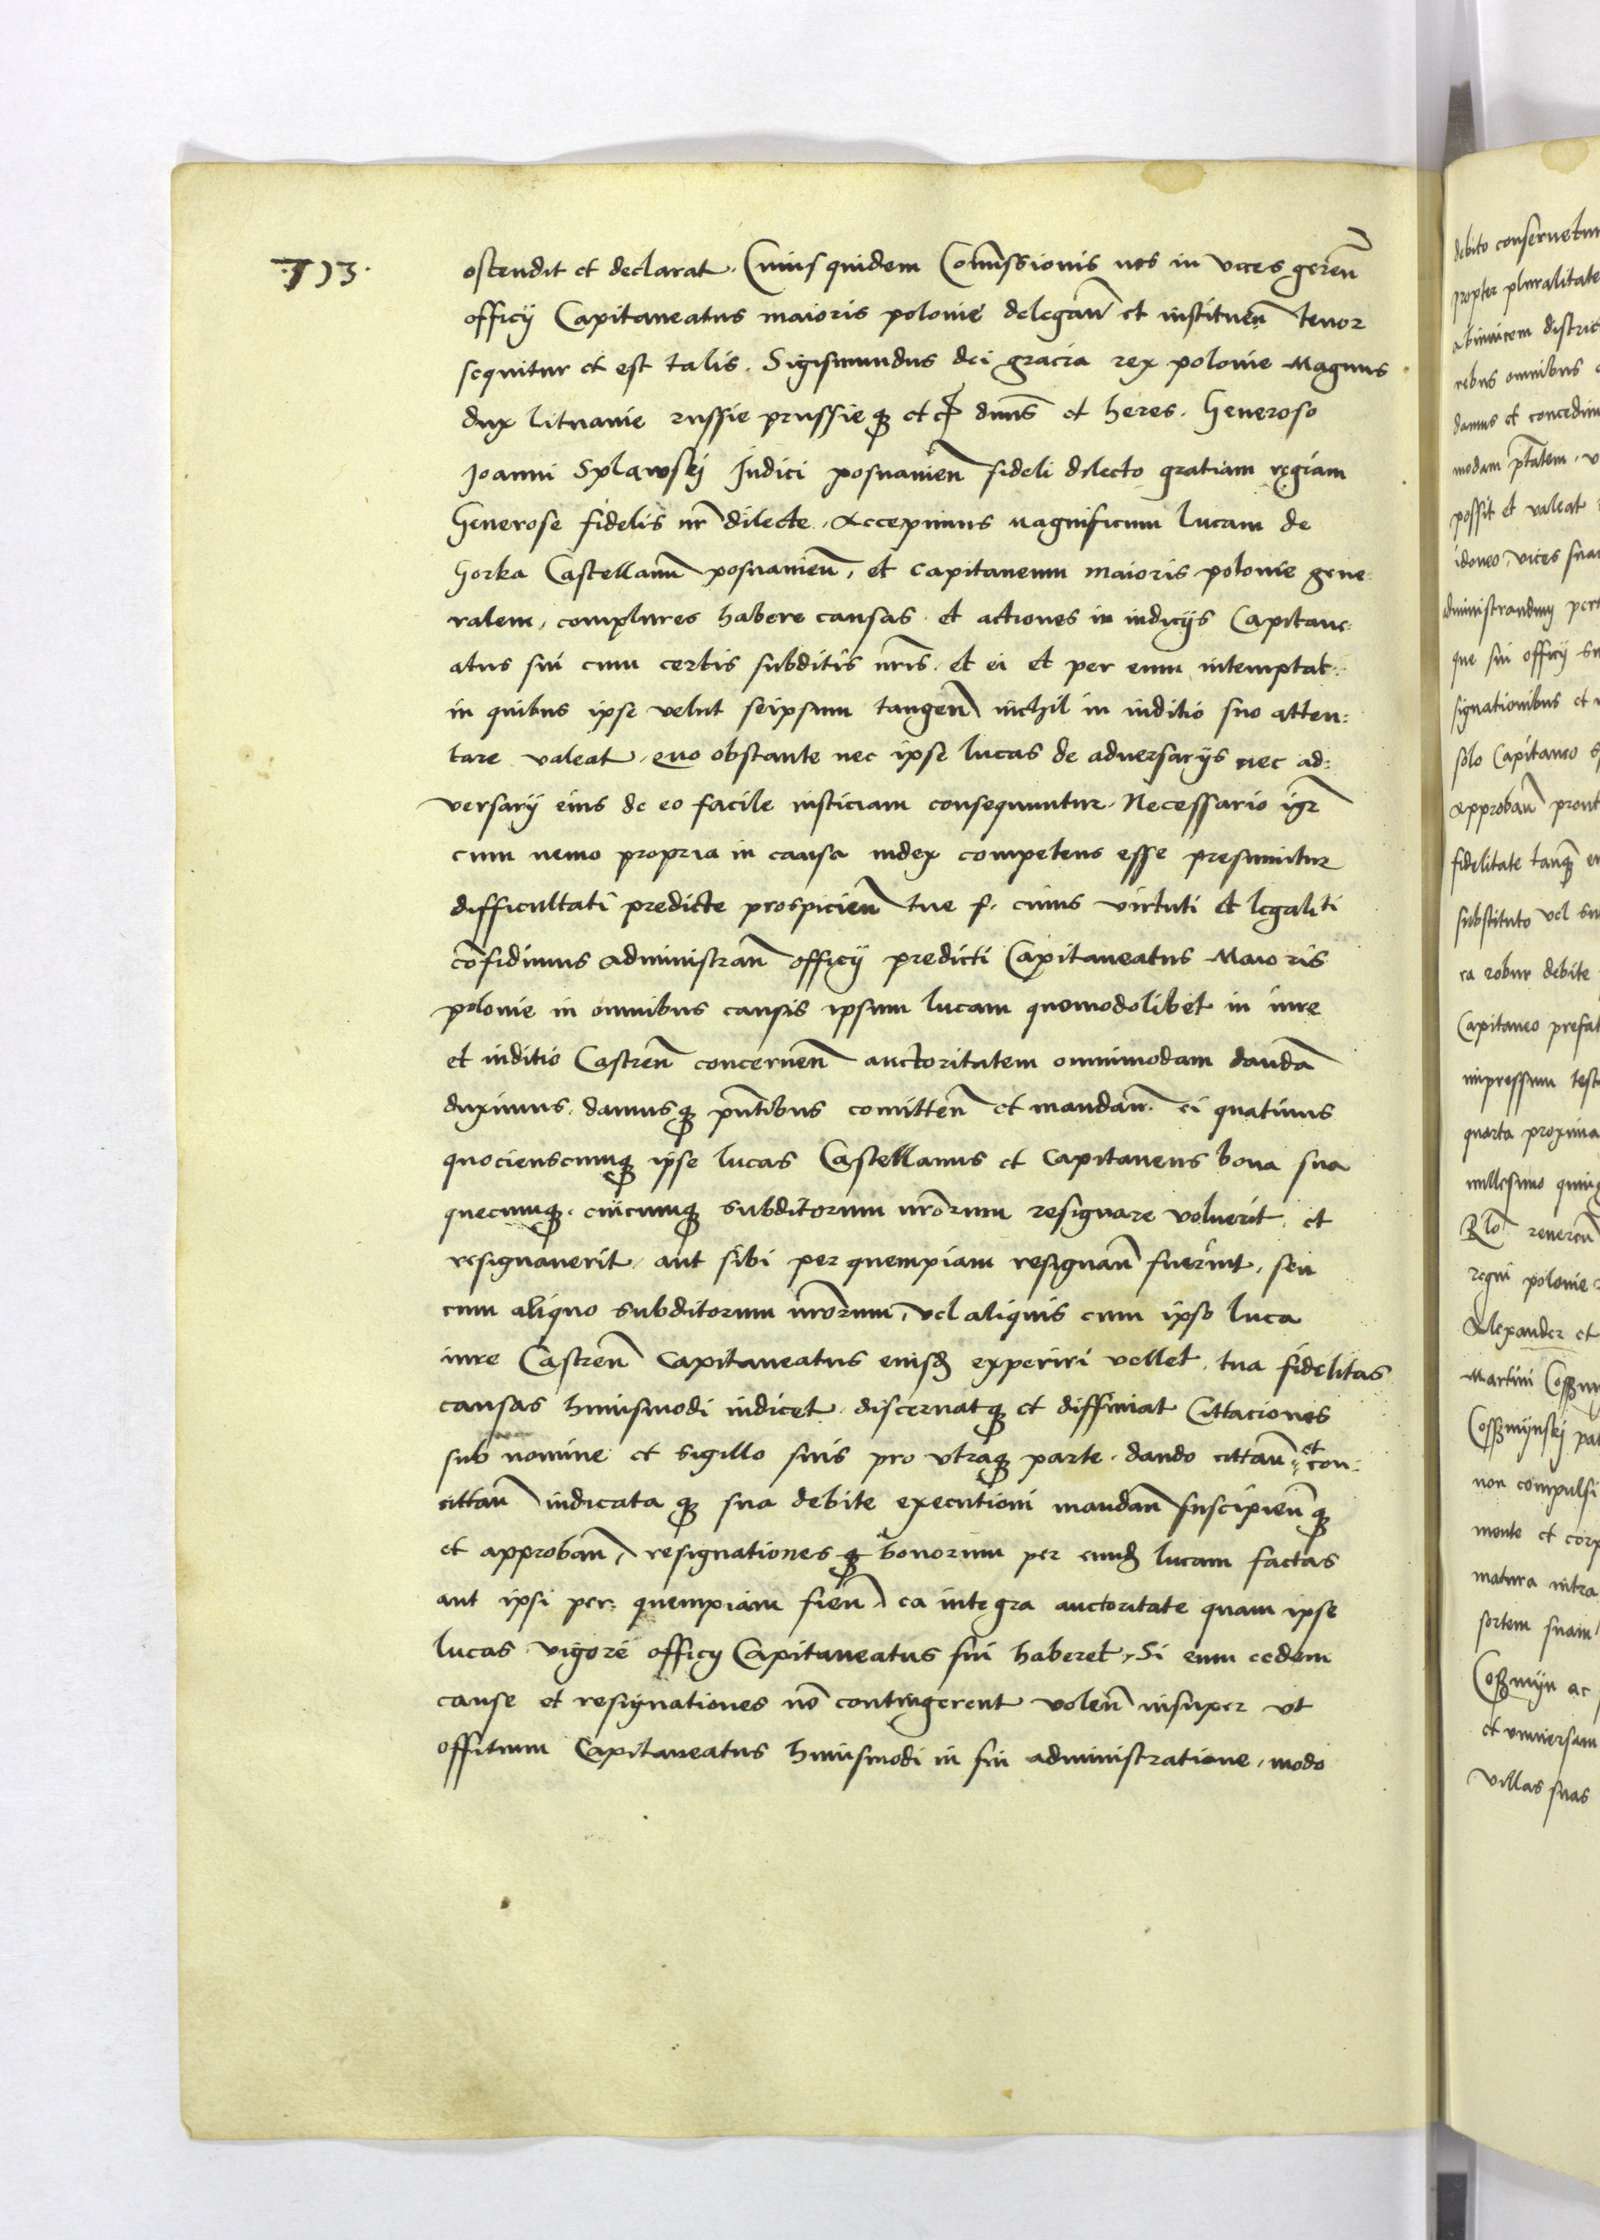 ostendit et declarat. Cuius quidem Commissionis nos in vices geren̄
officij Capitaneatus maioris polonie delegan̄ et instituen̄ tenor
sequitur et est talis. Sigismundus dei gracia rex polonie Magnus
dux litvanie russie prussieq̨ et cͣ dn̄us et heres. Generoso
Joanni Splawskj Judici posnanien̄ fideli dilecto gratiam regiam
Generose fidelis nr̄ dilecte. Accepimus magnificum lucam de
Gorka Castellanū posnanien̄, et capitaneum maioris polonie gene
ralem, complures habere causas et actiones in iudicijs Capitane:
atus sui cum certis subditis nr̄is. et ei et per eum intemptat:
in quibus ipse velut seipsum tangen̄ nichil in iuditio suo atten:
tare valeat, quo obstante nec ipse lucas de adversarijs nec ad:
versarij eius de eo facile iusticiam consequuntur. Necessario igr̄
cum nemo propria in causa iudex competens esse presumitur
difficultati predicte prospicien̄ tue f. cuius virtuti et legaliti
cōfidimus administran̄ officij predicti Capitaneatus Maioris
polonie in omnibus causis ipsum lucam quomodolibet in iure
et iuditio Castren̄ concernen̄ auctoritatem omnimodam dandā
duximus. damusq̨ pn̄tibus comitten̄ et mandan̄. ei quatinus
quocienscumq̨ ipse lucas Castellanus et capitaneus bona sua
quecumq̨. cuicumq̨ subditorum nr̄orum resignare voluerit et
resignaverit, aut sibi per quempiam resignan̄ fuerint, seu
cum aliquo subditorum nr̄orum, vel aliquis cum ipso luca
iure Castren̄ capitaneatus eiusd̄ experiri vellet, tua fidelitas
causas huiusmodi iudicet. discernatq̨ et diffiniat Cittaciones
sub nomine et sigillo suis pro utraq̨ parte. dando cittan̄ et con:
cittan̄ iudicataq̨ sua debite executioni mandan̄ suscipien̄q̨
et approban̄, resignationesq̨ bonorum per eund̄ lucam factas
aut ipsi per quempiam fien̄, ea integra auctoritate quam ipse
lucas vigore officij Capitaneatus sui haberet, Si eum eedem
cause et resignationes nō contingerent volen̄ insuper ut
offitium Capitaneatus huiusmodi in sui administratione, modo
debito conservetur
propter pluralitate
abinvicem distric
rebus omnibus
damus et concedim
modam pt̄atem, v
possit et valeat
idoneo, vices sua
administrandum pert
que sui officij
signationibus et
solo Capitaneo
approban̄ prout
fidelitate tanq̨
substituto vel su
ea robur debite
Capitaneo prefat
impressum test
quarta proxima
millesimo quing
regni polonie
Alexander et
Martini
non compulsi
mente et corp
matura intra
sortem suam
et universam
villas suas